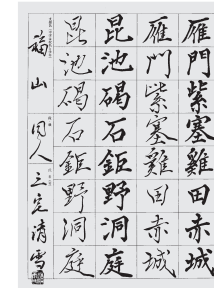 雁門紫塞雞田赤城
雁門紫塞雞田赤城
昆池碣石鉅野洞庭
昆池碣石鉅野洞庭
福山 同人 三完清雪